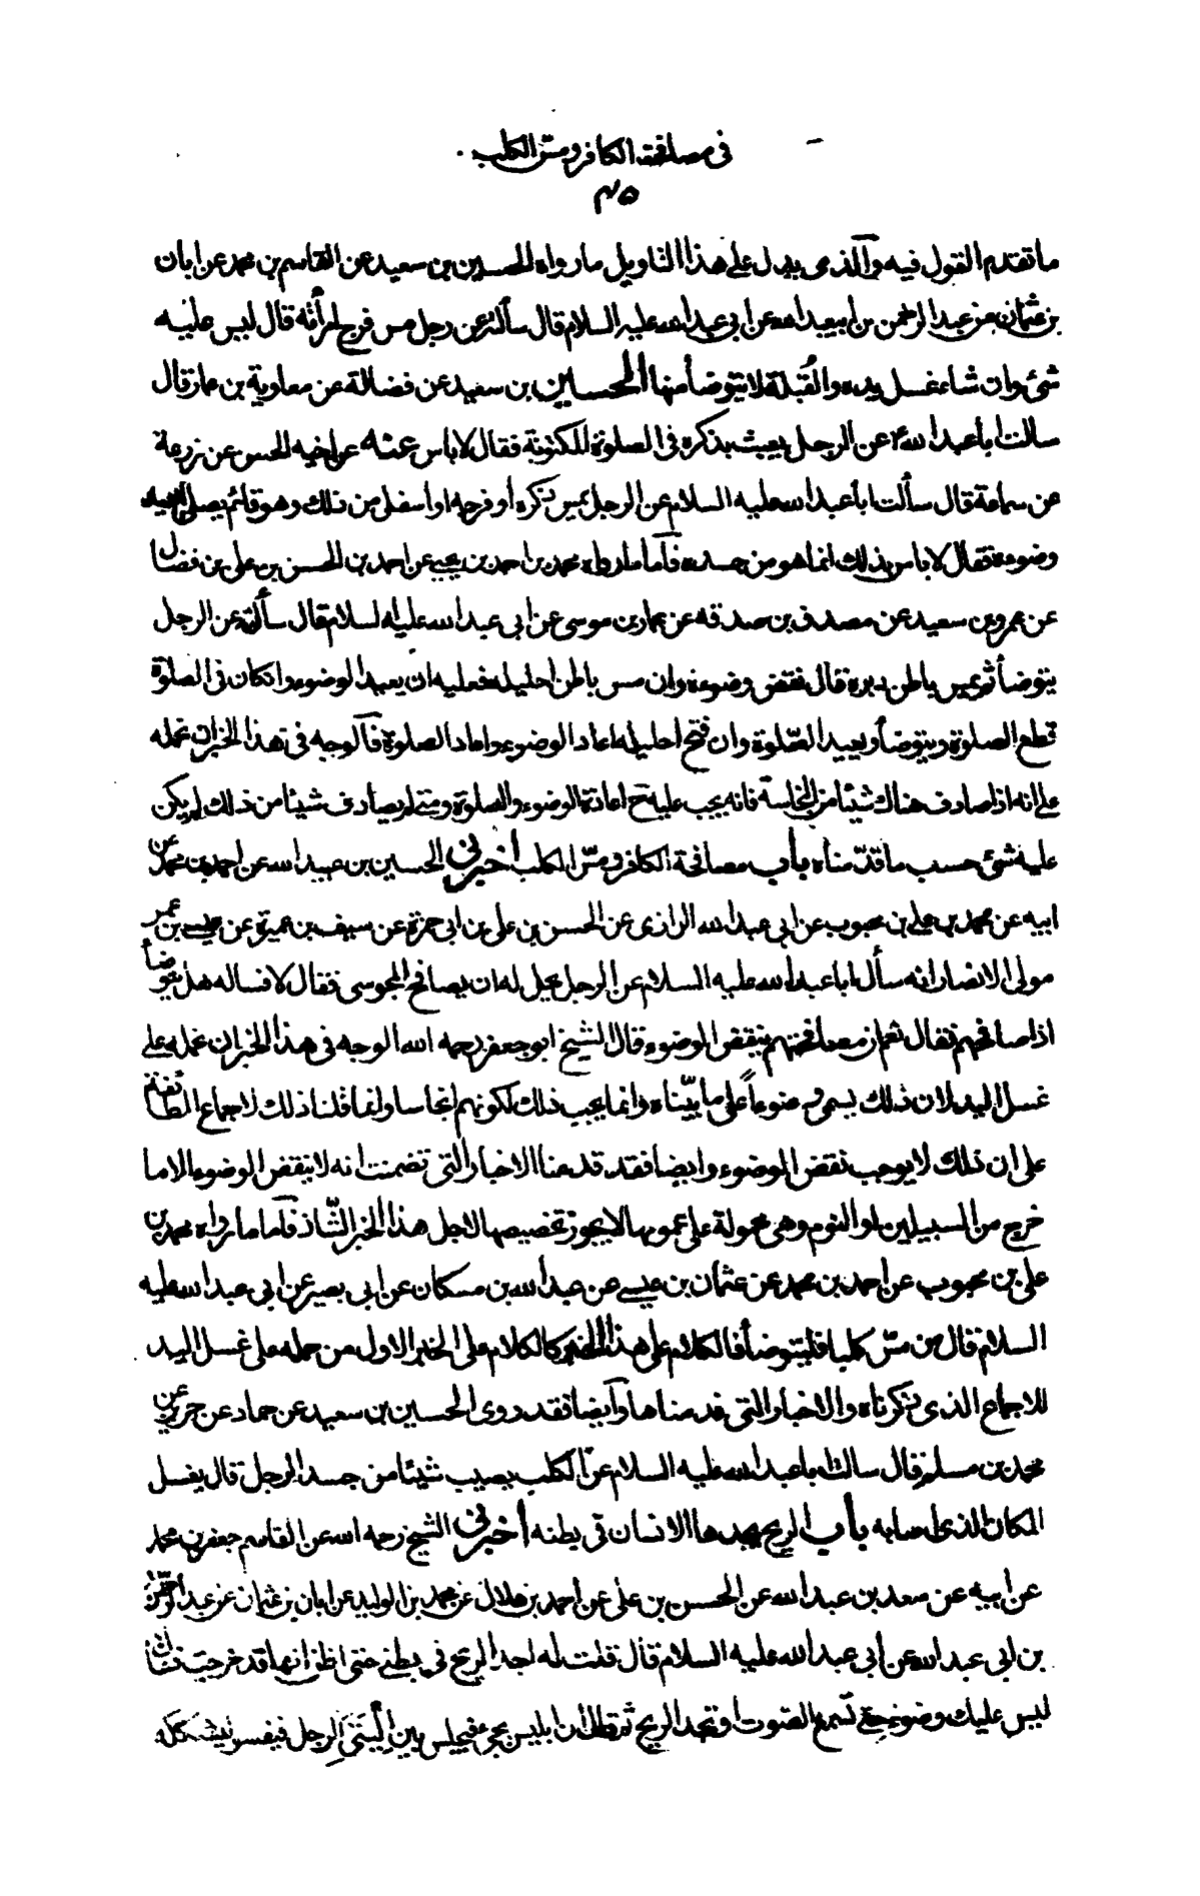 فى مصافحة الكافر ومس الكلب
٤٥
ما تقدم القول فيه والذى يدل على هذا التاويل ما رواه الحسين بن سعيد عن القاسم بن محمد عن ابان
بن عثمان عن عبد الرحمن بن ابيعبد الله عن ابى عبد الله عليه السلام قال سألته عن رجل مس فرج امرأته قال ليس عليه
شئ وان شاء غسل يده والقُبلة لا يتوضأ منها الحسين بن سعيد عن فضالة عن معاوية بن عمار قال
سالت ابا عبد الله ع عن الرجل يعبث بذكره فى الصلوة المكتوبة فقال لا باس عنه عن اخيه الحسن عن زرعة
عن سماعة قال سألت ابا عبد الله عليه السلام عن الرجل يمس ذكره او فرجه او اسفل من ذلك وهو قائم يصلى ايعيد
وضوءه فقال لا باس بذلك انما هو من جسده فاما ما رواه محمد بن احمد بن يحيى عن احمد بن الحسن بن على بن فضال
عن عمرو بن سعيد عن مصدق بن صدقه عن عمار بن موسى عن ابى عبد الله عليه السلام قال سألته عن الرجل
يتوضأ ثم يمس باطن دبره قال نقض وضوءه وان مس باطن احليله فعليه ان يعيد الوضوء وانكان فى الصلوة
قطع الصلوة ويتوضأ ويعيد الصّلوة وان فتح احليله اعاد الوضوء واعاد الصلوة فالوجه فى هذا الخبر ان نحمله
على انه اذا صادف هناك شيئا من النجاسة فانه يجب عليه ح اعادة الوضوء والصلوة ومتى لم يصادف شيئا من ذلك لم يكن
عليه شئ حسب ما قدّمناه باب مصافحة الكافر ومسّ الكلب أخبرنى الحسين بن عبيد الله عن احمد بن محمد عن
ابيه عن محمد بن على بن محبوب عن ابى عبد الله الرازى عن الحسن بن على بن ابى حمزة عن سيف بن عميرة عن عيسى بن عمر
مولى الانصار انه سأل ابا عبد الله عليه السلام عن الرجل يحل له ان يصافح المجوسى فقال لا فساله هل يتوضأ
اذا صافحهم فقال نعم ان مصافحتهم ينقض الوضوء قال الشيخ ابو جعفر رحمه الله الوجه فى هذا الخبر ان نحمله على
غسل اليد لان ذلك يسمى وضوءاً على ما بيّناه وانما يجب ذلك لكونهم انجاسا وانما قلنا ذلك لاجماع الطائفة
على ان ذلك لا يوجب نقض الوضوء وايضا فقد قدمنا الاخبار التى تضمنت انه لا ينقض الوضوء الا ما
خرج من السبيلين او النوم وهى محمولة على عمومها لا يجوز تخصيصها لاجل هذا الخبر الشّاذ فاما ما رواه محمد بن
على بن محبوب عن احمد بن محمد عن عثمان بن عيسى عن عبد الله بن مسكان عن ابى بصير عن ابى عبد الله عليه
السلام قال من مسّ كلبا فليتوضأ فالكلام على هذا الخبر كالكلام على الخبر الاول من حمله على غسل اليد
للاجماع الذى ذكرناه والاخبار التى قدمناها وايضا فقد روى الحسين بن سعيد عن حماد عن حريز عن
محمد بن مسلم قال سالت ابا عبد الله عليه السلام عن الكلب يصيب شيئا من جسد الرجل قال يغسل
المكان الذى اصابه باب الريح يجدها الانسان فى بطنه أخبرنى الشيخ رحمه الله عن القاسم جعفر بن محمد
عن ابيه عن سعد بن عبد الله عن الحسن بن على عن احمد بن هلال عن محمد بن الوليد عن ابان بن عثمان عن عبد الرحمن
بن ابى عبد الله عن ابى عبد الله عليه السلام قال قلت له اجد الريح فى بطنى حتى اظن انها قد خرجت فقال
ليس عليك وضوء حتى تسمع الصّوت او تجد الريح ثم قال ان ابليس يجئ فيجلس بين اليتى الرجل فيفسو ليشككه